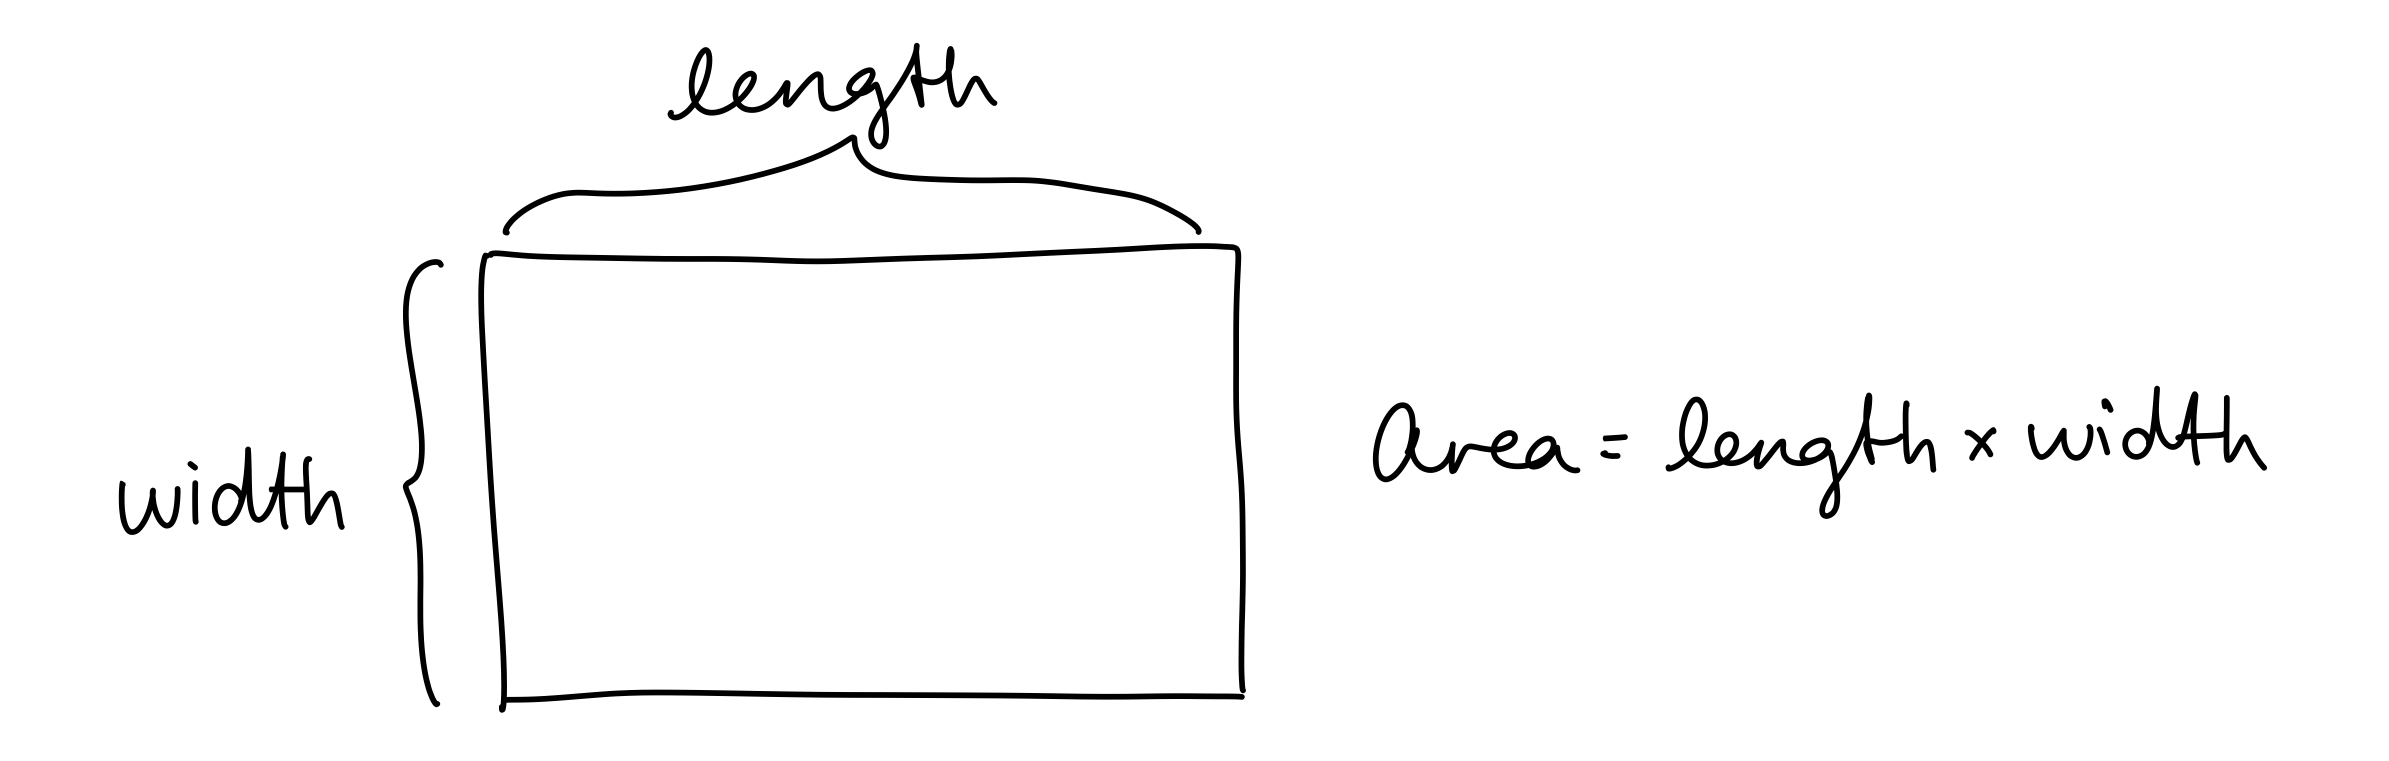 length
width
area = length x width